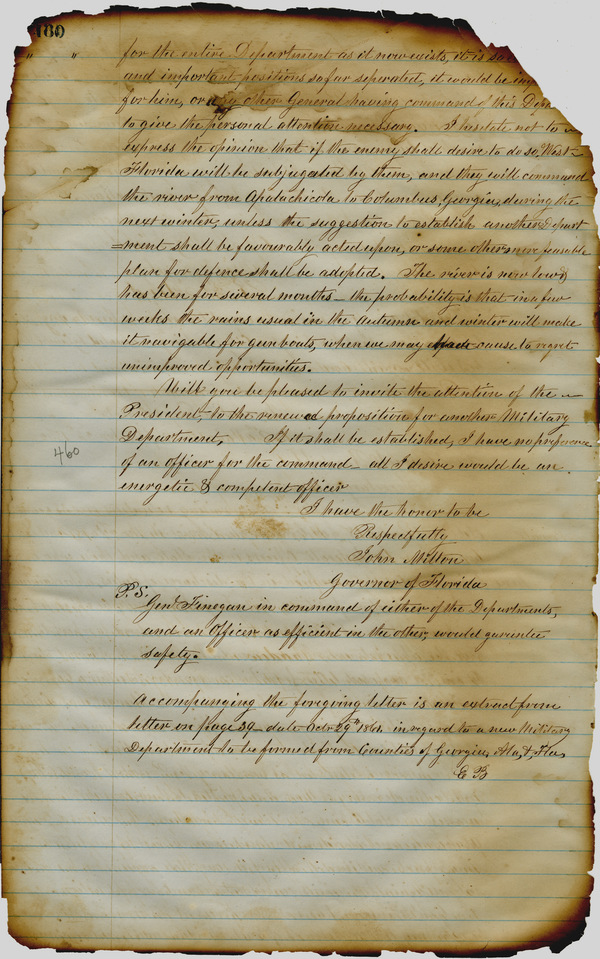 180
" "
for the entire Department as it now exists, it is so
and important positions so far seperated, it would be
for him, or any other General having command of this Depa
to give the personal attention necessary. I hesitate not to
express the opinion that if the enemy shall desire to do so, West
Florida will be subjugated by them, and they will command
the river from Apalachicola to Columbus Georgia, during the
next winter, unless the suggestion to establish another Depart
=ment shall be favourably acted upon, or some other more feasable
plan for defence shall be adopted. The river is now low &
has been for several months - the probability is that in a few
weeks the rains usual in the autumn and winter will make
it navigable for gun boats, when we may have cause to regret
unimproved opportunities.
Will you be pleased to invite the attention of the
President, to the renewed proposition for another Military
Department, If it shall be established, I have no preference
of an officer for the command - all I desire would be an
460
energetic & competent officer
I have the honor to be
Respectfully
John Milton
Governor of Florida
P.S.
Genl Finegan in command of either of the Departments,
and an Officer as efficient in the other, would garantee
safety.
Accompanging the foregoing letter is an extract from
letter on page 59 - date Octr 29th 1862 in regard to a new Military
Department to be formed from Counties of Georgia, Ala, & Fla,
E B